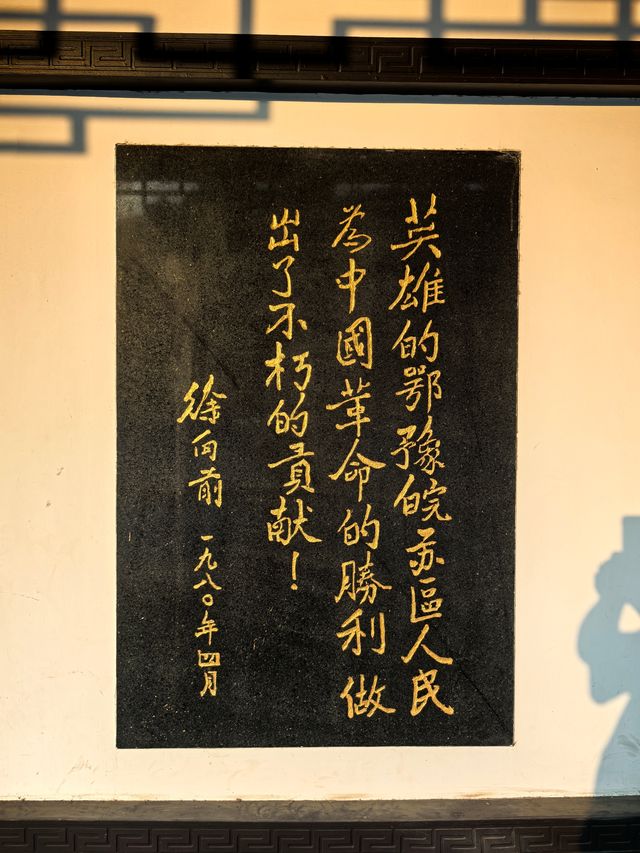 英雄的鄂豫皖苏區人民
為中國革命的勝利做
出了不朽的貢献！
徐向前 一九八〇年四月